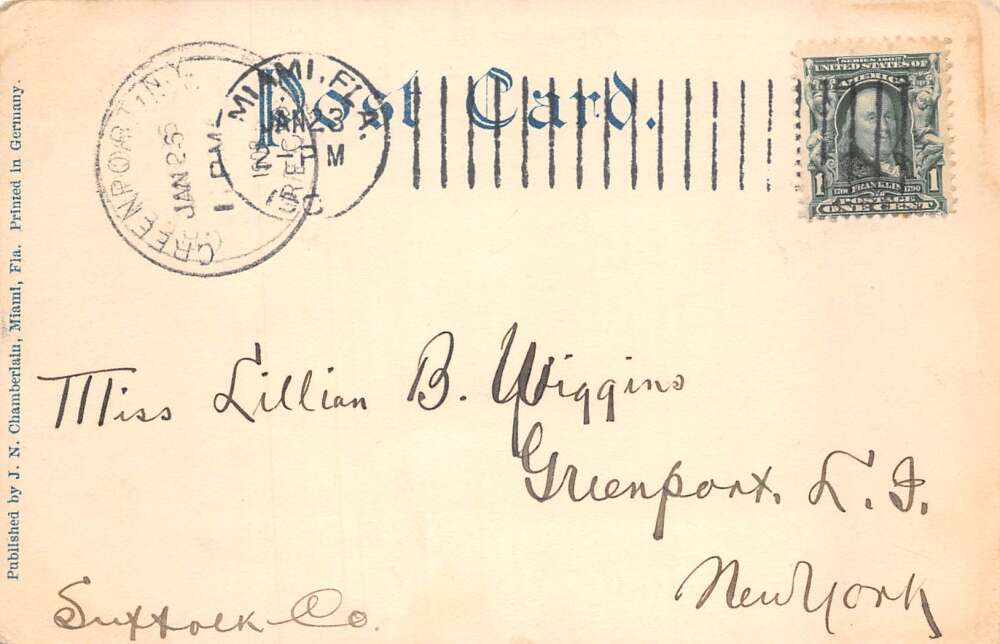 Post Card.
GREENPORT, N.Y.
JAN 26
1 PM
REC'D
MIAMI, FLA.
JAN 23
M
SERIES 1902
UNITED STATES OF AMERICA
1706 FRANKLIN 1790
1 POSTAGE 1
ONE CENT
Miss Lillian B. Wiggins
Greenport, L. I.
New York
Suffolk Co.
Published by J. N. Chamberlain, Miami, Fla. Printed in Germany.